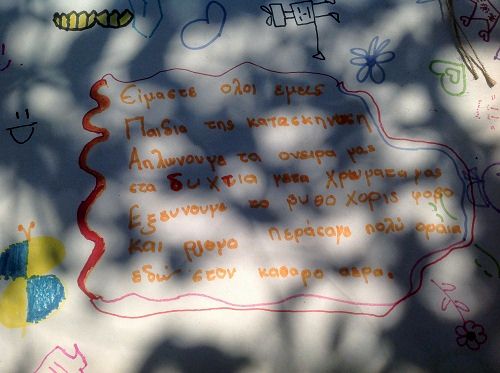 Είμαστε ολοι εμεις
Παιδια της κατασκηνωση
Απλωνουμε τα ονειρα μας
στα διχτια μετα χρωματα μας
Εξευνουμε το βυθο χορις φοβο
και βρομο περάσαμε πολύ οραία
εδώ στον καθαρο αερα.